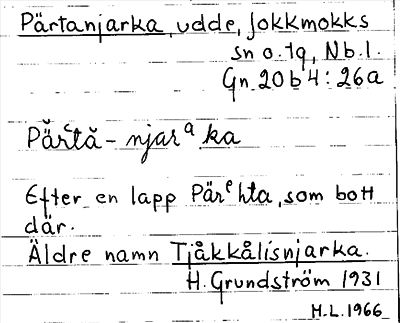 Pärtanjarka, udde, Jokkmokks
sn o. tg, Nb. l.
Gn 20 b 4 : 26a
Pǟrᵉtă - njarᵃka
Efter en lapp Pärᵉhta, som bott
där.
Äldre namn Tjåkkålisnjarka.
H. Grundström 1931
H.L. 1966